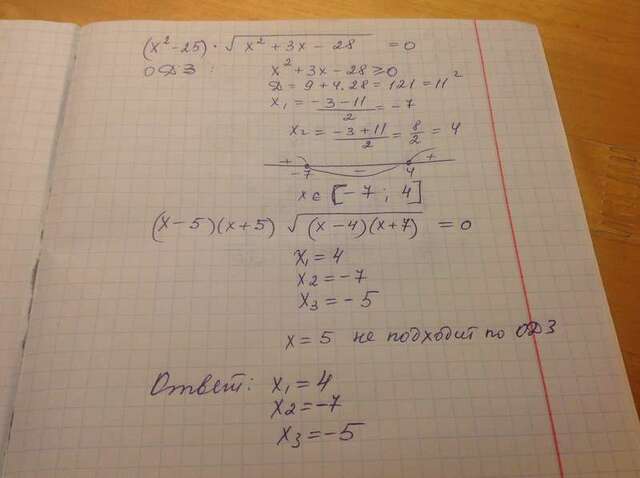 (x² - 25) · √(x² + 3x - 28) = 0
ОДЗ: x² + 3x - 28 ≥ 0
Д = 9 + 4·28 = 121 = 11²
x₁ = (-3-11)/2 = -7
x₂ = (-3+11)/2 = 8/2 = 4
+ - +
-7 4
x ∈ [-7; 4]
(x-5)(x+5) √((x-4)(x+7)) = 0
x₁ = 4
x₂ = -7
x₃ = -5
x = 5 не подходит по ОДЗ
Ответ: x₁ = 4
x₂ = -7
x₃ = -5